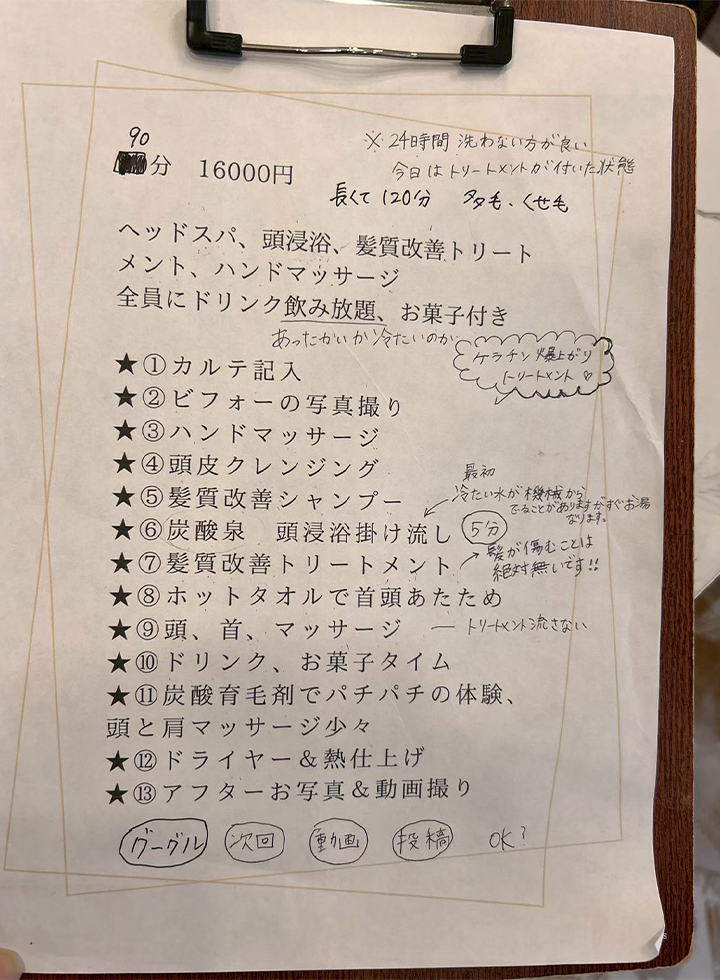 ※ 24時間 洗わない方が良い
90
分 16000円
今日はトリートメントが付いた状態
長くて 120分 多毛、くせ毛
ヘッドスパ、頭浸浴、髪質改善トリート
メント、ハンドマッサージ
全員にドリンク飲み放題、お菓子付き
あったかいか冷たいのか
ケラチン爆上がり
トリートメント♡
★①カルテ記入
★②ビフォーの写真撮り
★③ハンドマッサージ
★④頭皮クレンジング
最初
冷たい水が機械から
でることがありますがすぐお湯
なります。
★⑤髪質改善シャンプー
★⑥炭酸泉 頭浸浴掛け流し 5分
★⑦髪質改善トリートメント
髪が傷むことは
絶対無いです!!
★⑧ホットタオルで首頭あたため
★⑨頭、首、マッサージ ― トリートメント流さない
★⑩ドリンク、お菓子タイム
★⑪炭酸育毛剤でパチパチの体験、
頭と肩マッサージ少々
★⑫ドライヤー&熱仕上げ
★⑬アフターお写真&動画撮り
グーグル 次回 動画 投稿 OK?